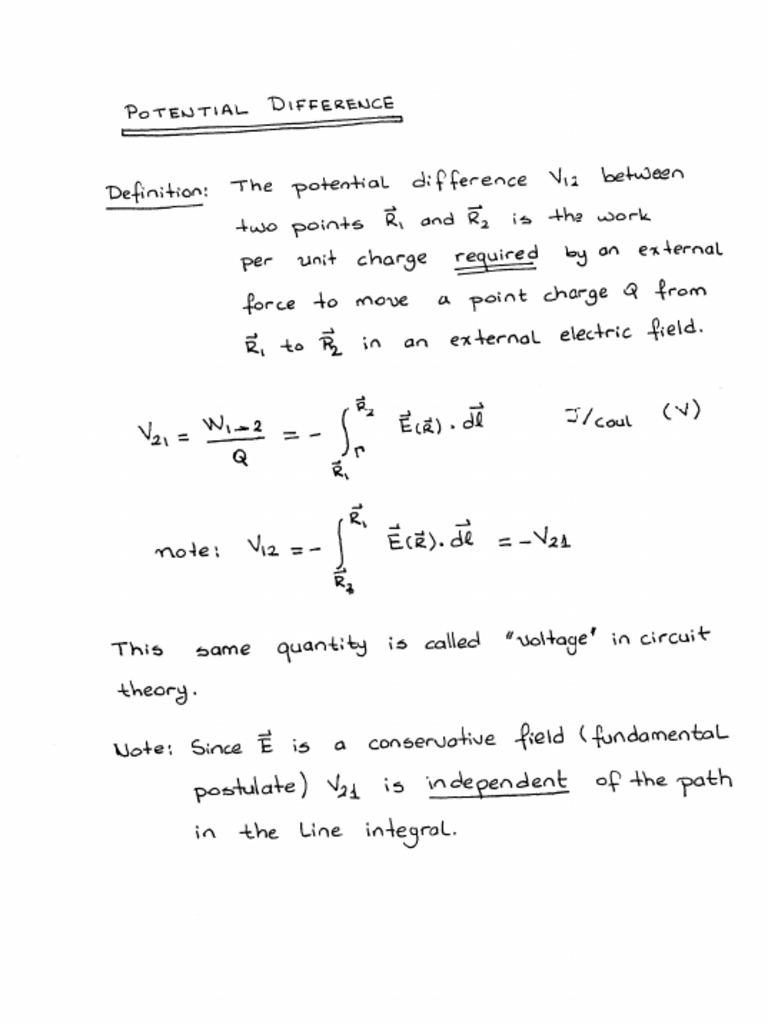 POTENTIAL DIFFERENCE
Definition: The potential difference V₁₂ between
two points R⃗₁ and R⃗₂ is the work
per unit charge required by an external
force to move a point charge Q from
R⃗₁ to R⃗₂ in an external electric field.
V₂₁ = W₁→₂ / Q = - ∫_{R⃗₁}^{R⃗₂} E⃗(R⃗) . dl⃗ J/coul (V)
note: V₁₂ = - ∫_{R⃗₂}^{R⃗₁} E⃗(R⃗) . dl⃗ = -V₂₁
This same quantity is called "voltage" in circuit
theory.
Note: Since E⃗ is a conservative field (fundamental
postulate) V₂₁ is independent of the path
in the Line integral.